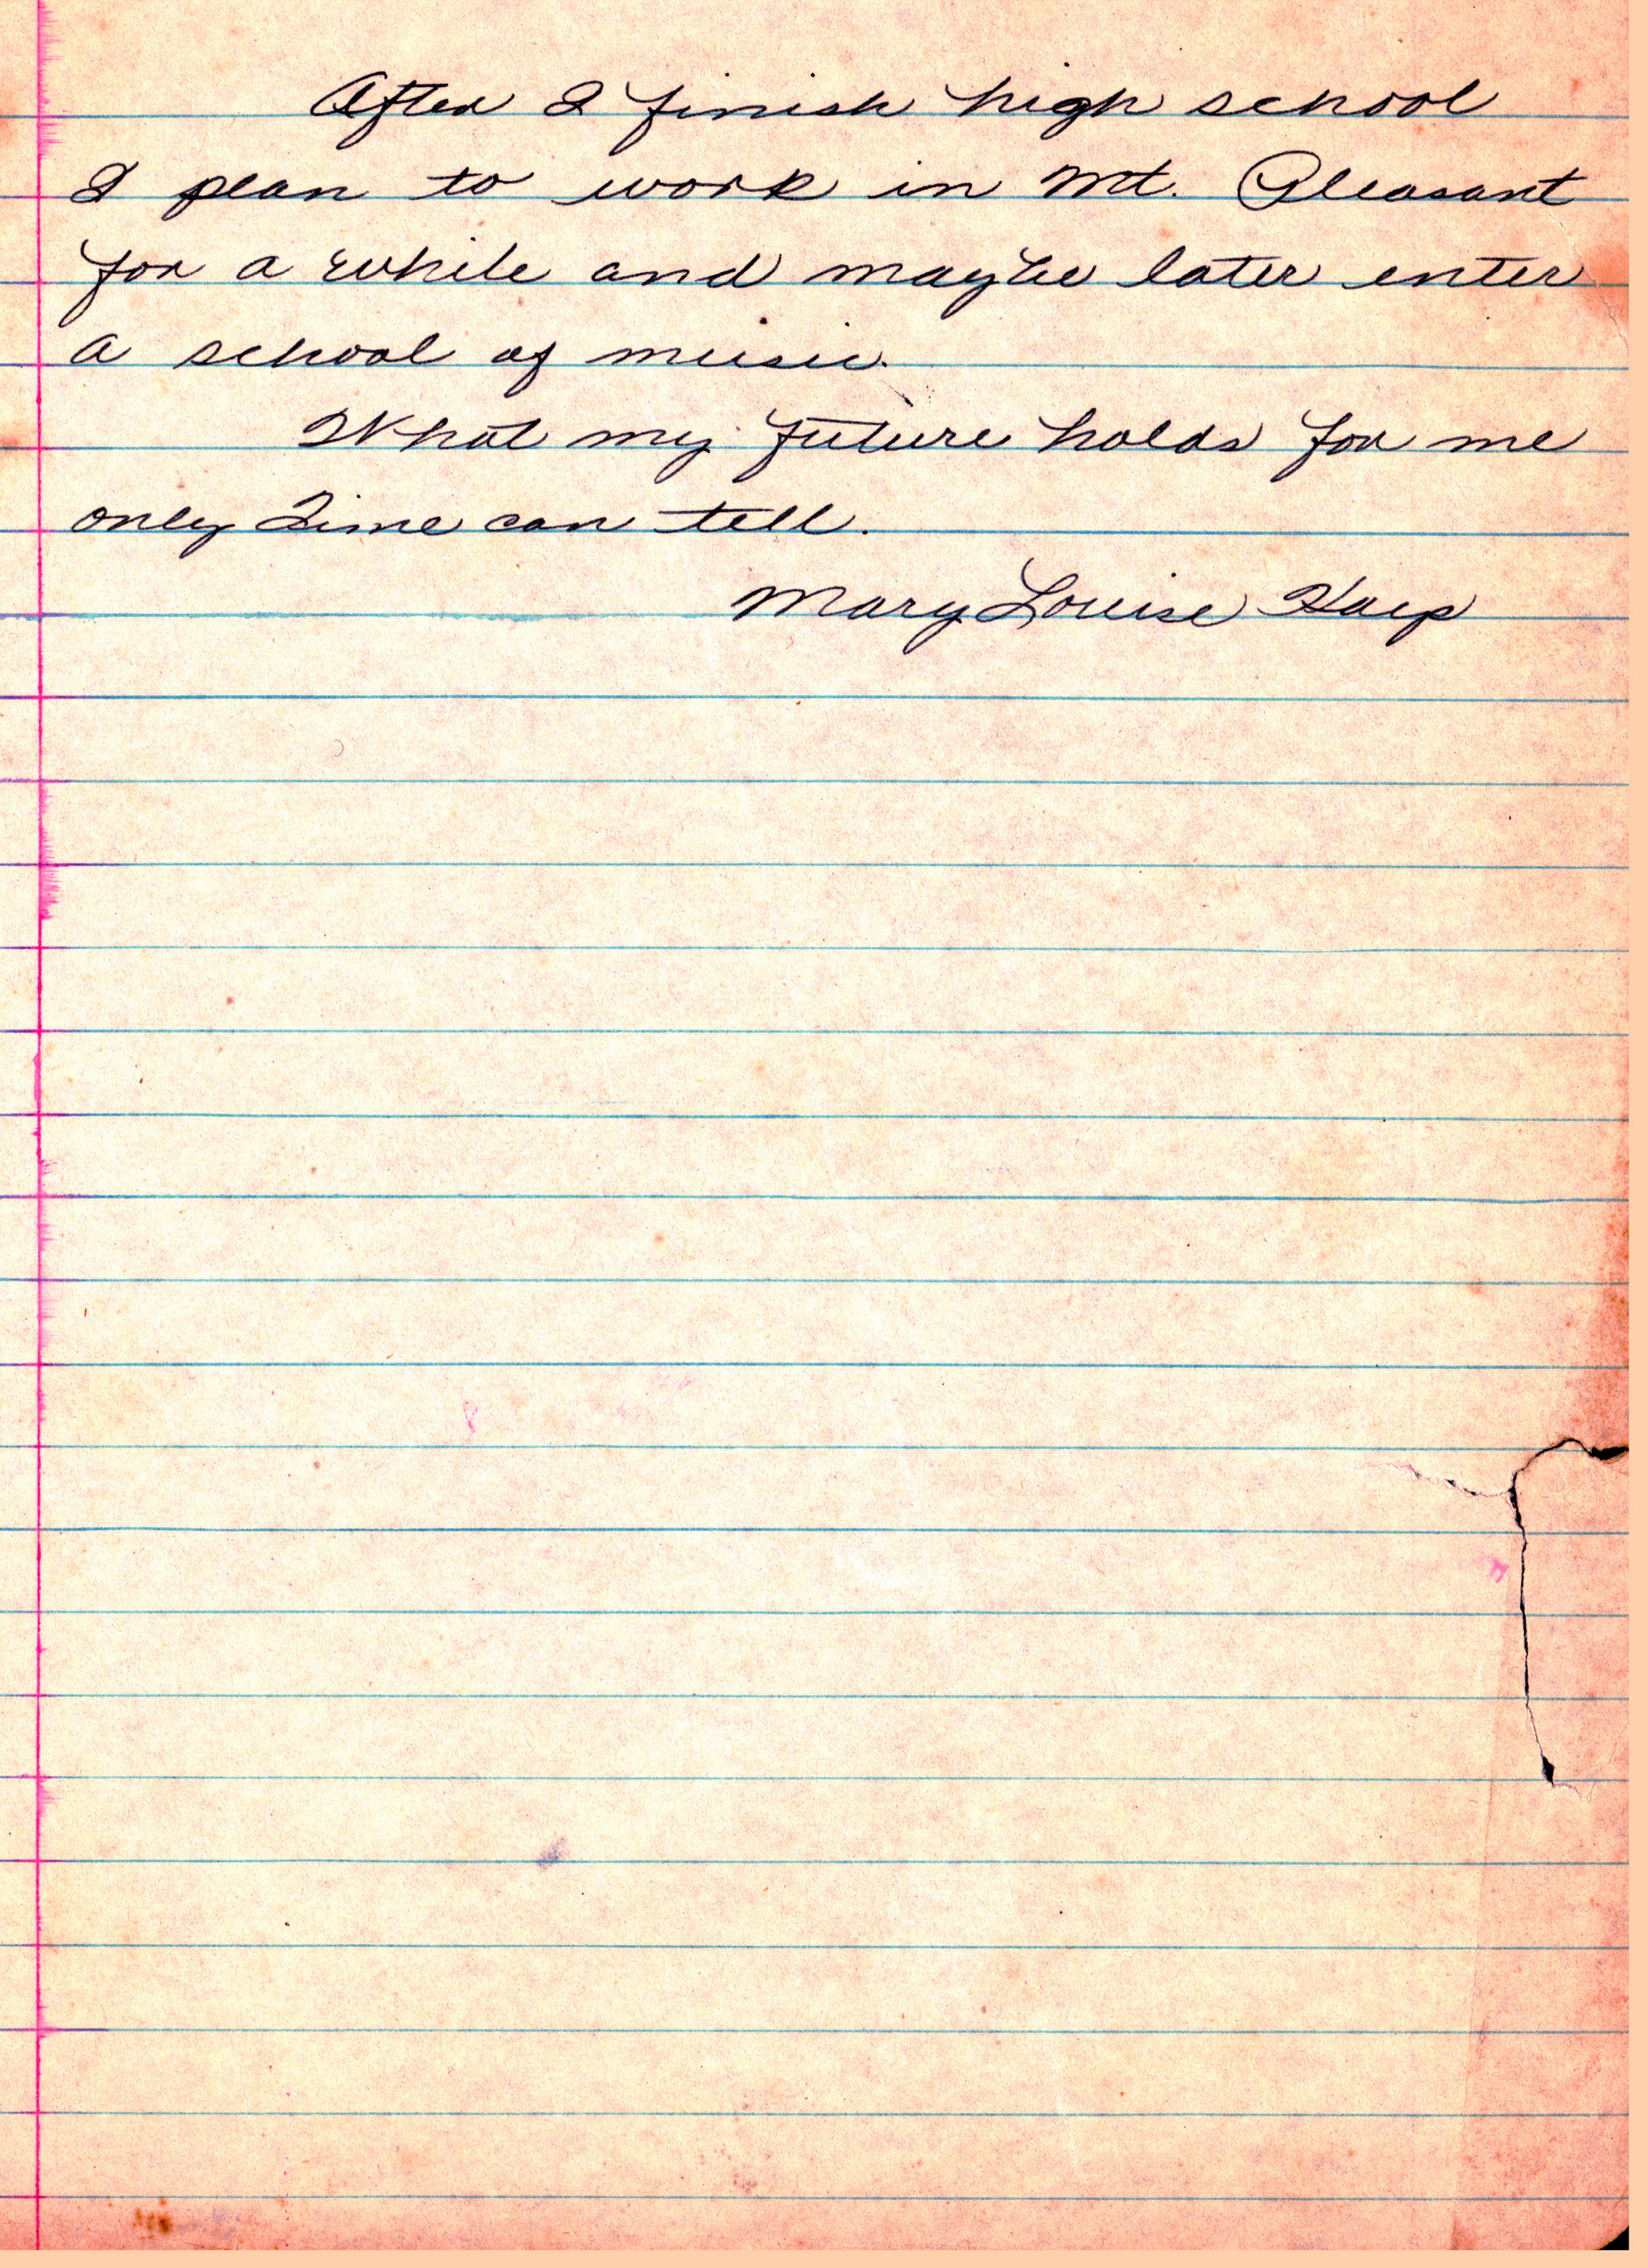 After I finish high school
I plan to work in Mt. Pleasant
for a while and maybe later enter
a school of music.
What my future holds for me
only Time can tell.
Mary Louise Harp